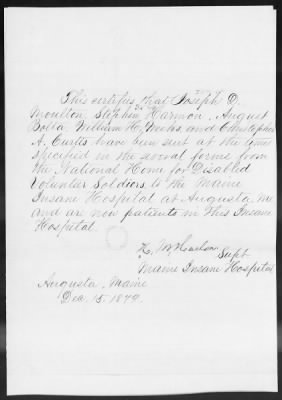 This certifies that Joseph D.
Moulton, Stephen Harmon, August
Bolla, William H. Weeks, and Christopher
A. Curtis have been sent at the times
specified in the several forms from
the National Home for Disabled
Volunteer Soldiers to the Maine
Insane Hospital at Augusta, Me
and are now patients in this Insane
Hospital.
H. M. Harlow
Supt
Maine Insane Hospital
Augusta, Maine
Dec. 15. 1879.